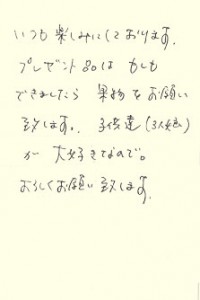 いつも楽しみにしております。
プレゼント品は もしも
できましたら 果物をお願い
致します。子供達(3人娘)
が 大好きなので。
よろしくお願い致します。